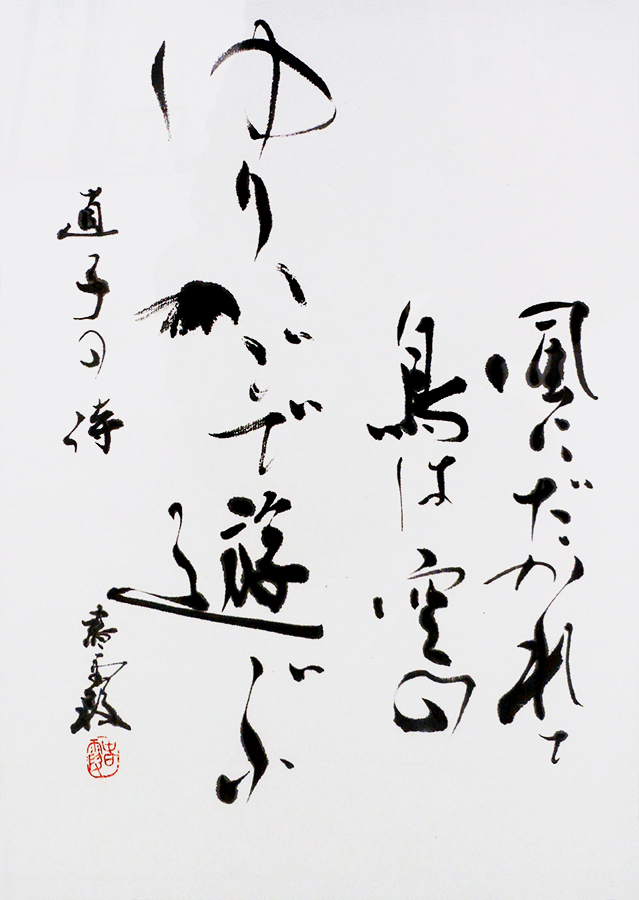 風にだかれて
鳥は空の
ゆりかごで遊ぶ
直子の詩